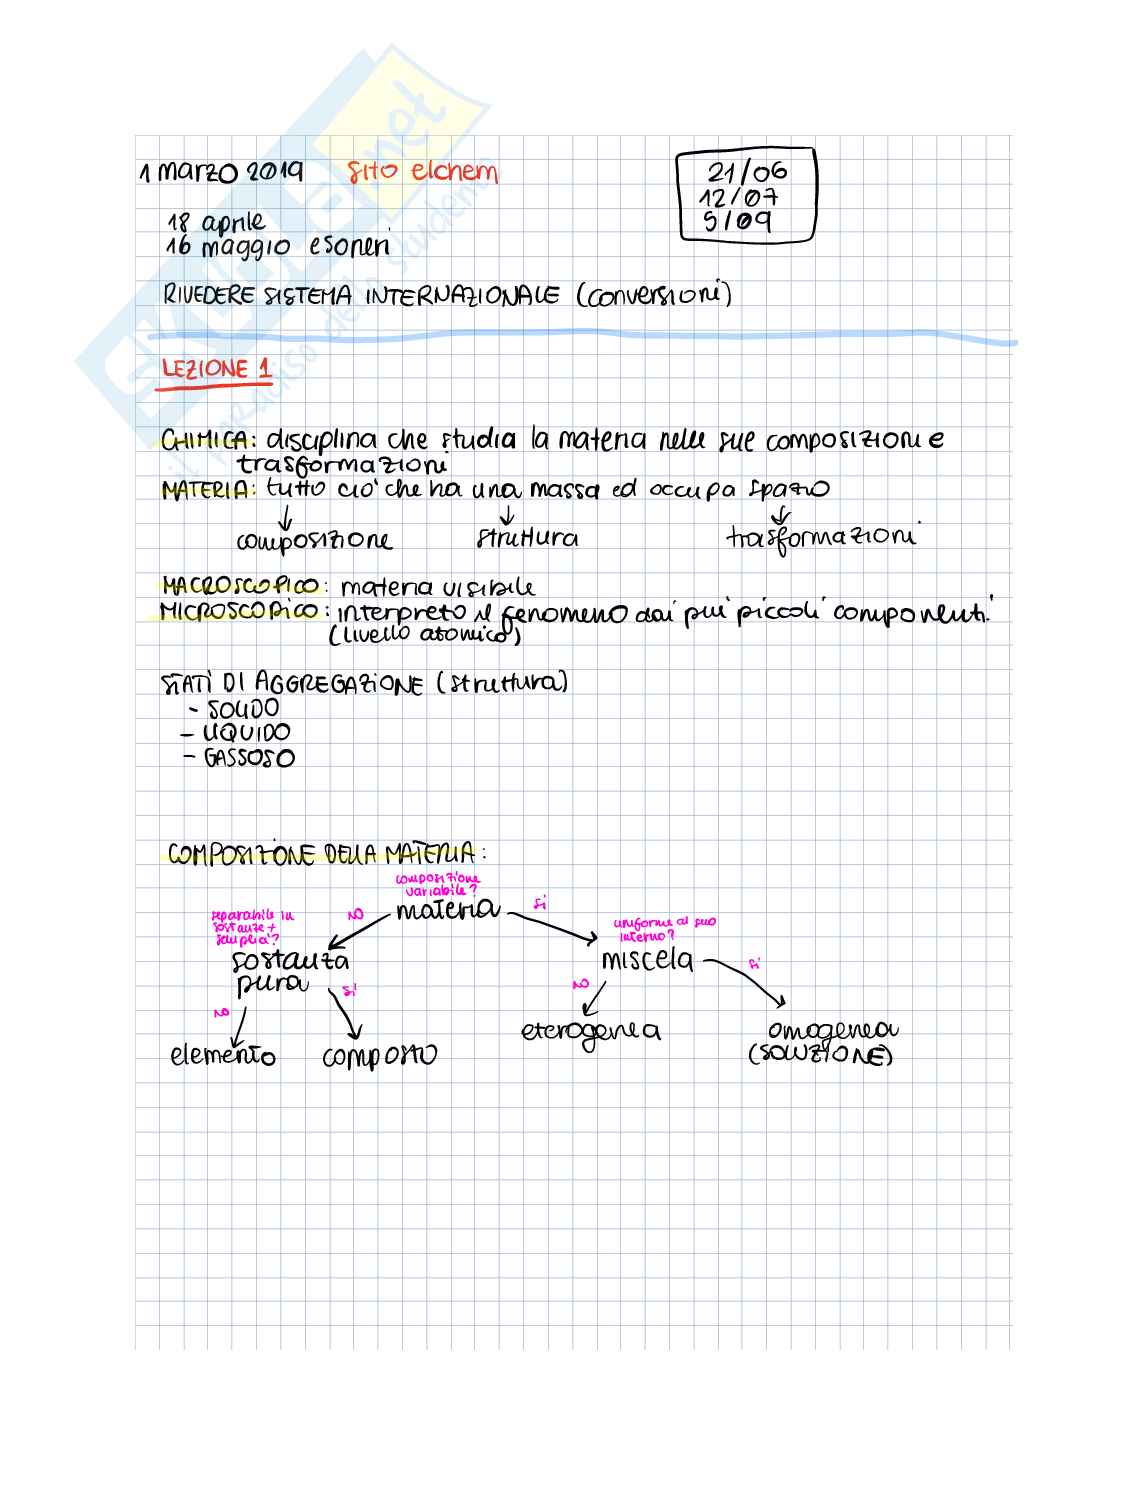 1 marzo 2019 sito elchem
21/06
12/07
5/09
18 aprile
16 maggio esoneri
RIVEDERE SISTEMA INTERNAZIONALE (conversioni)
LEZIONE 1
CHIMICA: disciplina che studia la materia nelle sue composizioni e
trasformazioni
MATERIA: tutto ciò che ha una massa ed occupa spazio
composizione struttura trasformazioni
MACROSCOPICO: materia visibile
MICROSCOPICO: interpreto il fenomeno dai più piccoli componenti
(livello atomico)
STATI DI AGGREGAZIONE (struttura)
- SOLIDO
- LIQUIDO
- GASSOSO
COMPOSIZIONE DELLA MATERIA:
composizione
variabile?
NO materia si
separabile in
sostanze +
semplici?
sostanza
pura
uniforme al suo
interno?
miscela si
NO si NO
elemento composto
eterogenea omogenea
(SOLUZIONE)
SKUOLA.net
il paradiso dello studente